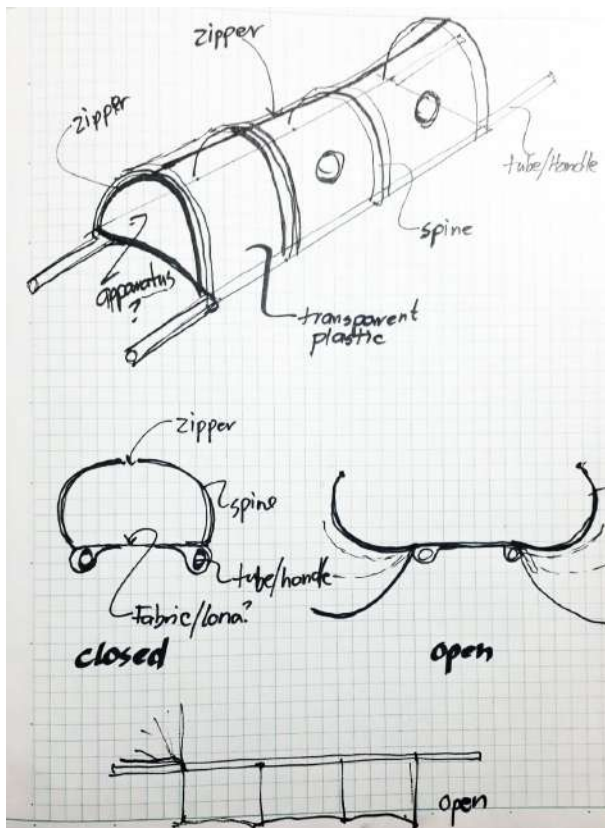 zipper
zipper
tube/Handle
spine
apparatus
?
transparent
plastic
zipper
spine
tube/handle
Fabric/lona?
closed
open
open